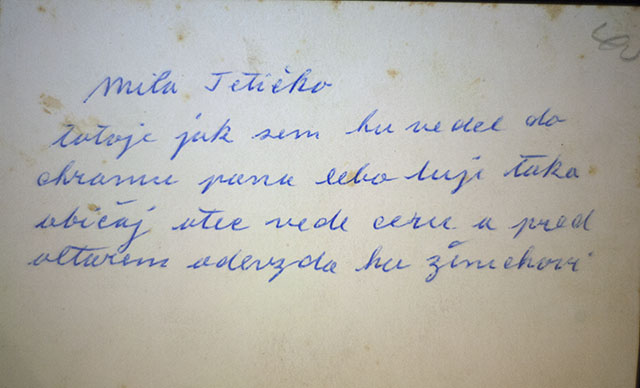 Mila Tetičko
totoje jak sem hu vedel do
chramu pana lebo tuje taka
običaj otec vede ceru a pred
oltarem odevzda hu ženichovi